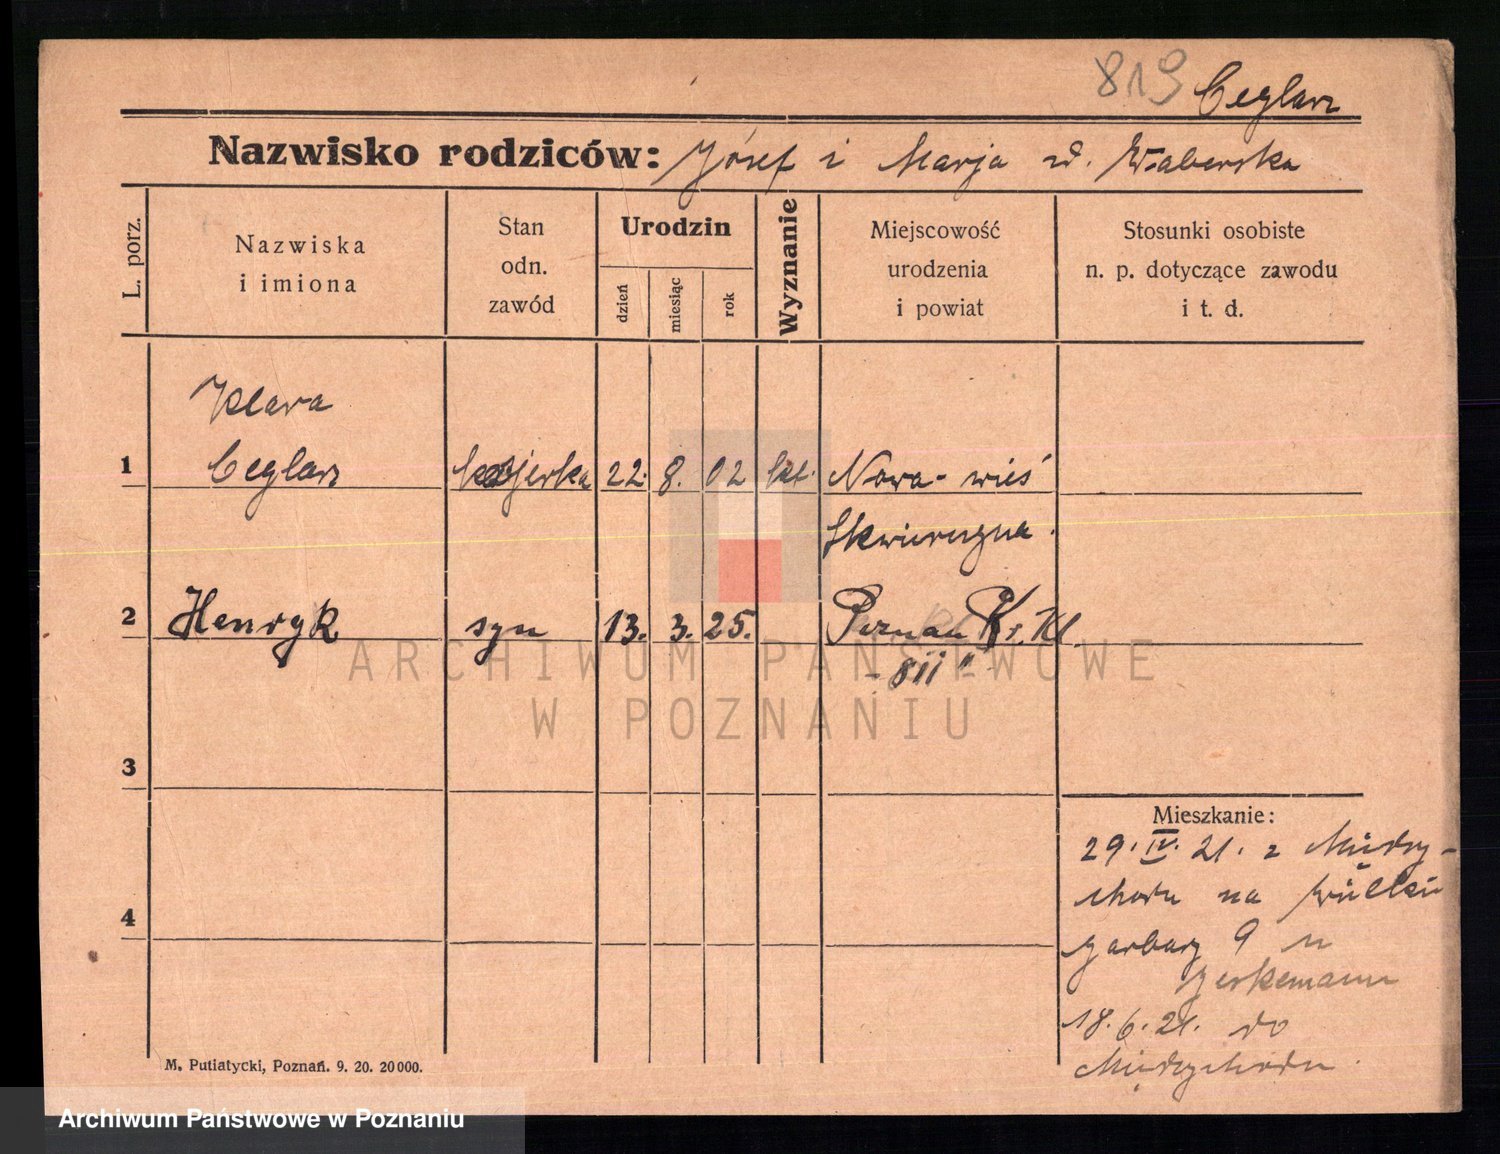 819 Ceglarz
Nazwisko rodziców: Józef i Marja z d. Waberska
L. porz.
Nazwiska
i imiona
Stan
odn.
zawód
Urodzin
dzień
miesiąc
rok
Wyznanie
Miejscowość
urodzenia
i powiat
Stosunki osobiste
n. p. dotyczące zawodu
i t. d.
Klara
1 Ceglarz 22. 8. 02 kt. Nowa-wieś
Skwierzyna.
2 Henryk syn 13. 3. 25. Poznań Kr. Kl.
- 811 "
ARCHIWUM PAŃSTWOWE
W POZNANIU
3
Mieszkanie:
29. IV. 21. z Między-
chodu na Wielkie
4
garbary 9 u
Jerkemann
18. 6. 21. do
Międzychodu.
M. Putiatycki, Poznań. 9. 20. 20000.
Archiwum Państwowe w Poznaniu